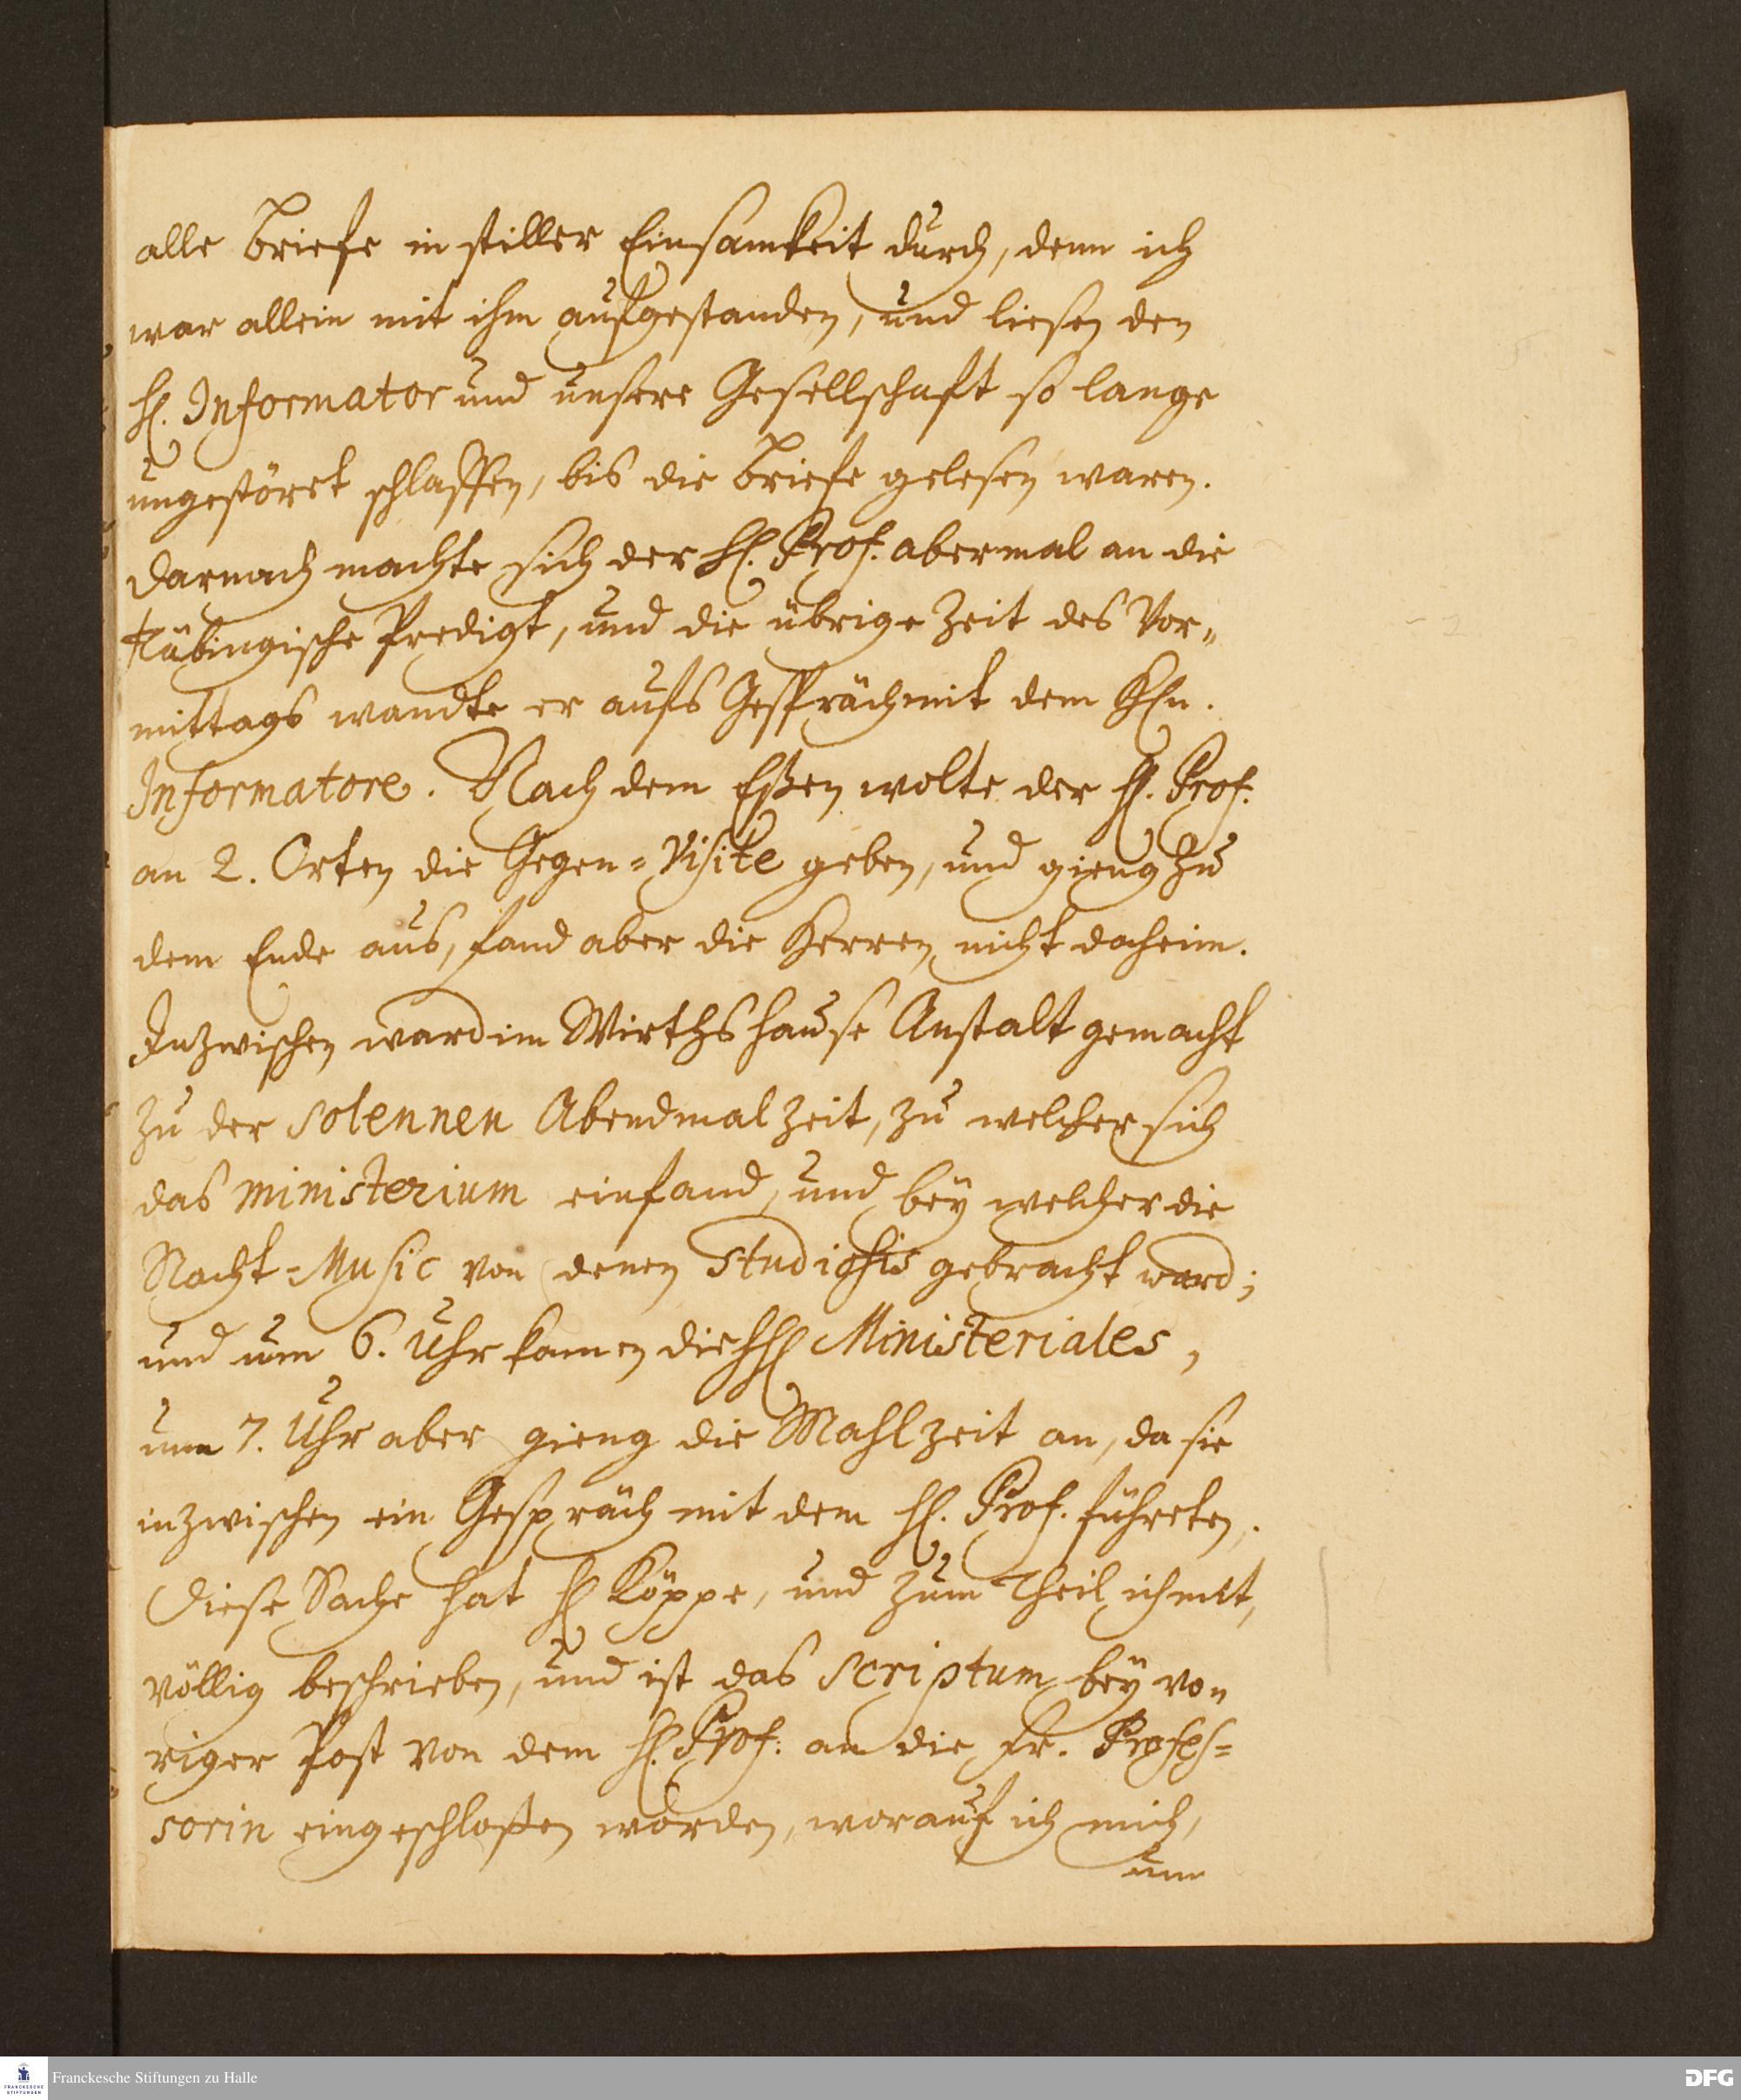 alle Briefe in stiller Einsamkeit durch, denn ich
war allein mit ihm aufgestanden, und liesen den
H. Informator und unsere Gesellschaft so lange
ungestöret schlaffen, bis die Briefe gelesen waren.
Darnach machte sich der H. Prof. abermal an die
Tübingische Predigt, und die übrige Zeit des Vor„
mittags wandte er aufs Gespräch mit dem HEn.
Informatore. Nach dem Eßen wolte der H. Prof.
an 2. Orten die Gegen-Visite geben, und gieng zu
dem Ende aus, fand aber die Herren nicht daheim.
Inzwischen ward im Wirthshause Anstalt gemacht
zu der solennen Abendmalzeit, zu welcher sich
das ministerium einfand, und bey welcher die
Nacht-Music von denen Studiosis gebracht ward;
und um 6. Uhr kamen die HH Ministeriales,
um 7. Uhr aber gieng die Mahlzeit an, da sie
inzwischen ein Gespräch mit dem H. Prof. führeten.
Diese Sache hat H Köppe, und zum Theil ich mit,
völlig beschrieben, und ist das scriptum bey vo„
riger Post von dem H. Prof. an die Fr. Profes-
sorin eingeschloßen worden, worauf ich mich,
um
Franckesche Stiftungen zu Halle
FRANCKESCHE STIFTUNGEN
DFG